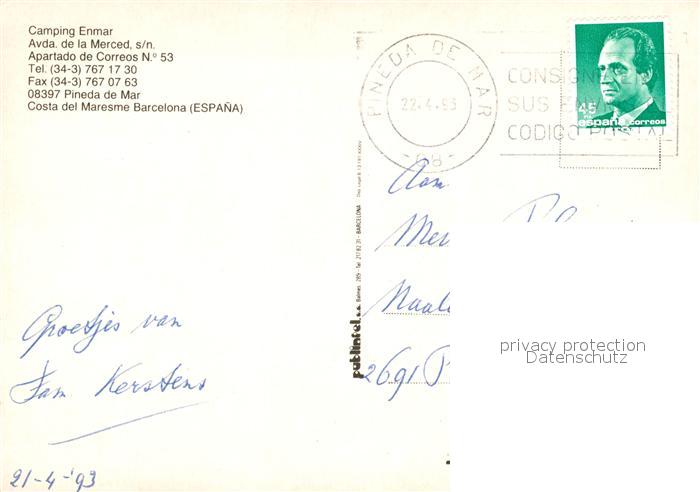 Camping Enmar
Avda. de la Merced, s/n.
Apartado de Correos N.º 53
Tel. (34-3) 767 17 30
Fax (34-3) 767 07 63
08397 Pineda de Mar
Costa del Maresme Barcelona (ESPAÑA)
PINEDA DE MAR
22.4.93
-08-
CONSIGNE
SUS
CODIGO POSTAL
45
españa correos
publintel, s.a. Balmes, 265 - Tel. 217 82 31 - BARCELONA
Aan
Naal
2691 P
privacy protection
Datenschutz
Groetjes van
Fam Kerstens
21-4-'93